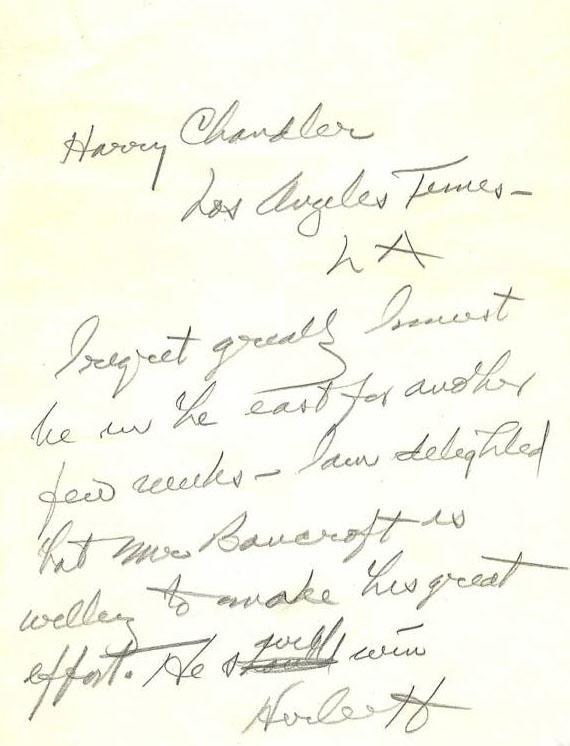 Harry Chandler
Los Angeles Times -
L A
I regret greatly I must
be in the east for another
few weeks - I am delighted
that Mr Bancroft is
willing to make this great
effort. He will win
Herbert